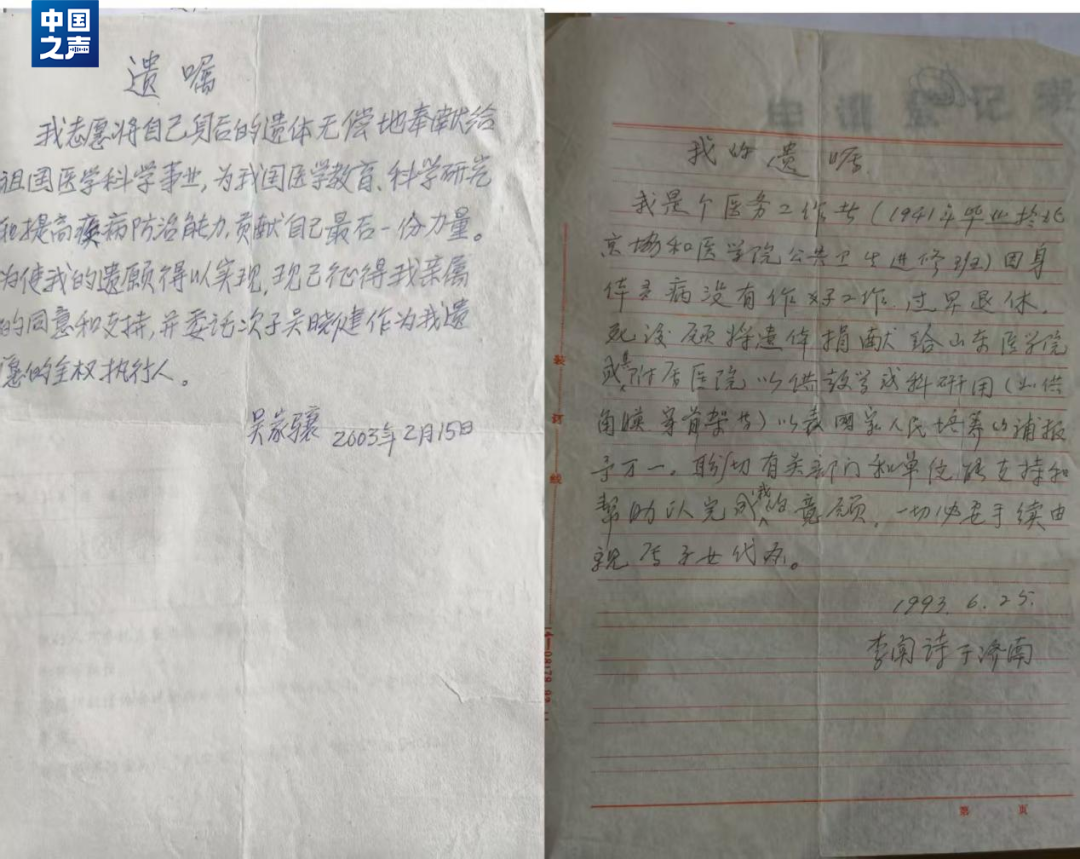 中国
之声
遗嘱
我志愿将自己身后的遗体无偿地奉献给
祖国医学科学事业,为我国医学教育、科学研究
和提高疾病防治能力,贡献自己最后一份力量。
为使我的遗愿得以实现,现已征得我亲属
的同意和支持,并委托次子吴晓健作为我遗
愿的全权执行人。
吴家骧 2003年2月15日
我的遗嘱
我是个医务工作者(1941年毕业於北
京协和医学院公共卫生进修班)因身
体多病没有作好工作,过早退休,
死後愿将遗体捐献给山东医学院
或其附属医院以供教学或科研用(如供
角膜穿骨架者)以表国家人民培养的浦报
于万一。盼切有关部门和单位能支持和
帮助以完成我的意愿,一切必要手续由
亲属子女代办。
1993.6.25.
李闻诗于济南
装
订
线
第 页